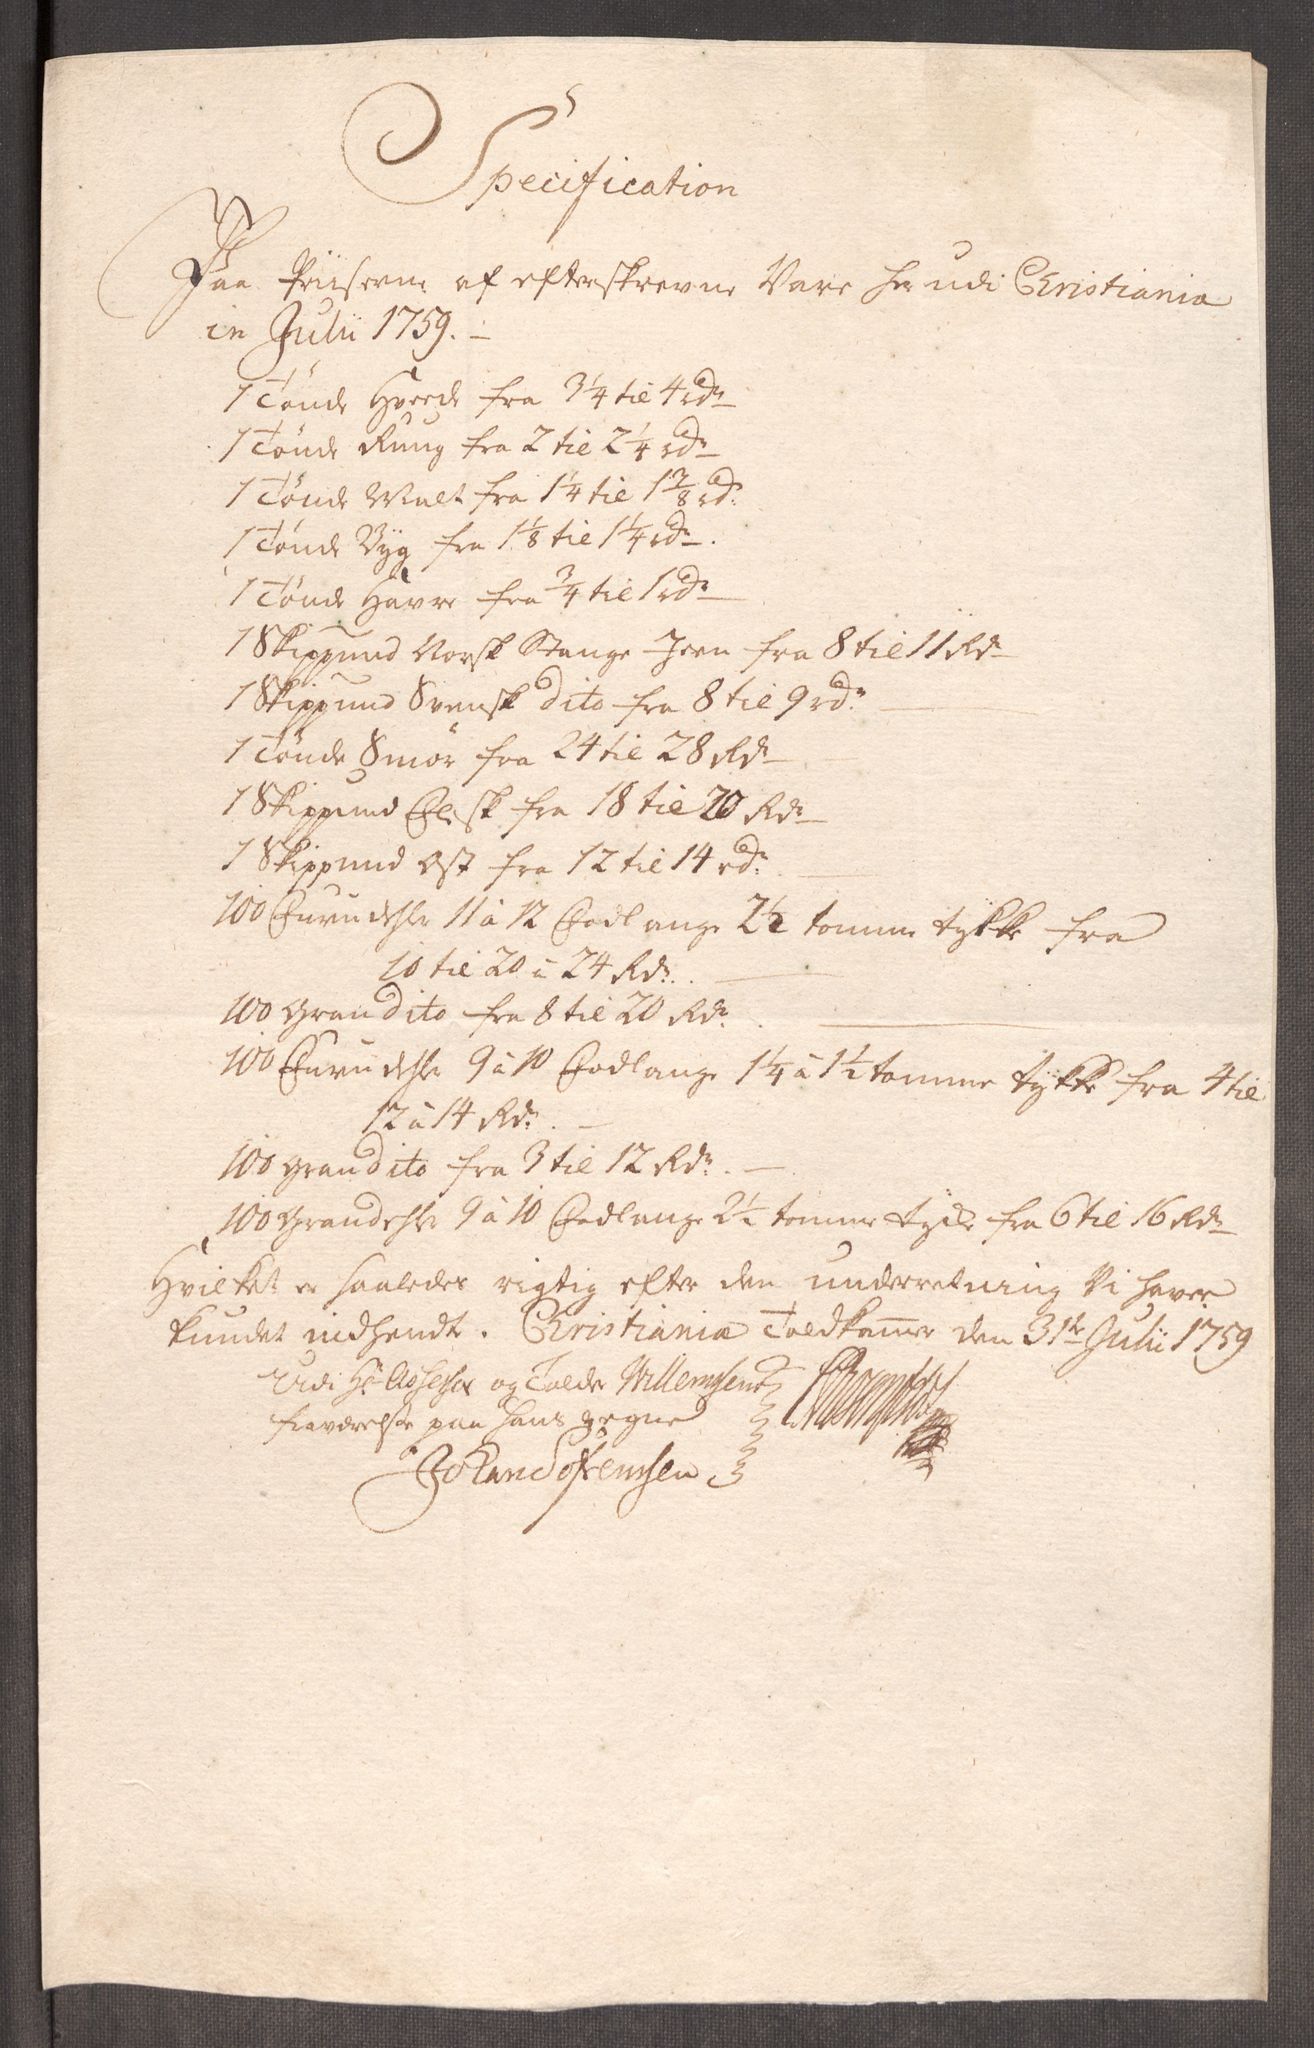 Specification
Paa Priiserne af efterskrevne Vare her udi Christiania
in Julii 1759. –
1 Tönde Hveede fra 3 1/4 til 4 rdr
1 Tönde Rung fra 2 til 2 1/4 rdr
1 Tönde Malt fra 1 1/4 til 1 3/8 rdr
1 Tönde Byg fra 1 1/8 til 1 1/4 rdr.
1 Tönde Havre fra 3/4 til 1 rdr
1 Skippund Norsk Stange Jern fra 8 til 11 Rdr
1 Skippund Svensk dito fra 8 til 9 rdr
1 Tönde Smör fra 24 til 28 Rdr
1 Skippund Flesk fra 18 til 20 Rdr
1 Skippund Ost fra 12 til 14 rdr
100 Furu dehler 11 à 12 Fod lange 2 1/2 tomme tykke fra
10 til 20 à 24 Rdr.
100 Gran dito fra 8 til 20 Rdr.
100 Furu dehler 9 à 10 Fod lange 1 1/4 à 1 1/2 tomme tykke fra 4 til
12 à 14 Rdr. –
100 Gran dito fra 3 til 12 Rdr. –
100 Grandehler 9 à 10 Fod lange 2 1/2 tomme fra 6 til 16 Rdr
Hvilket er saaledes rigtig efter den underretning Vi haver
kundet indhendt. Christiania Toldkammer den 31te Julii 1759
Udi Hr Assessor og Tolder Willemsens
fraværelse paa hans vegne